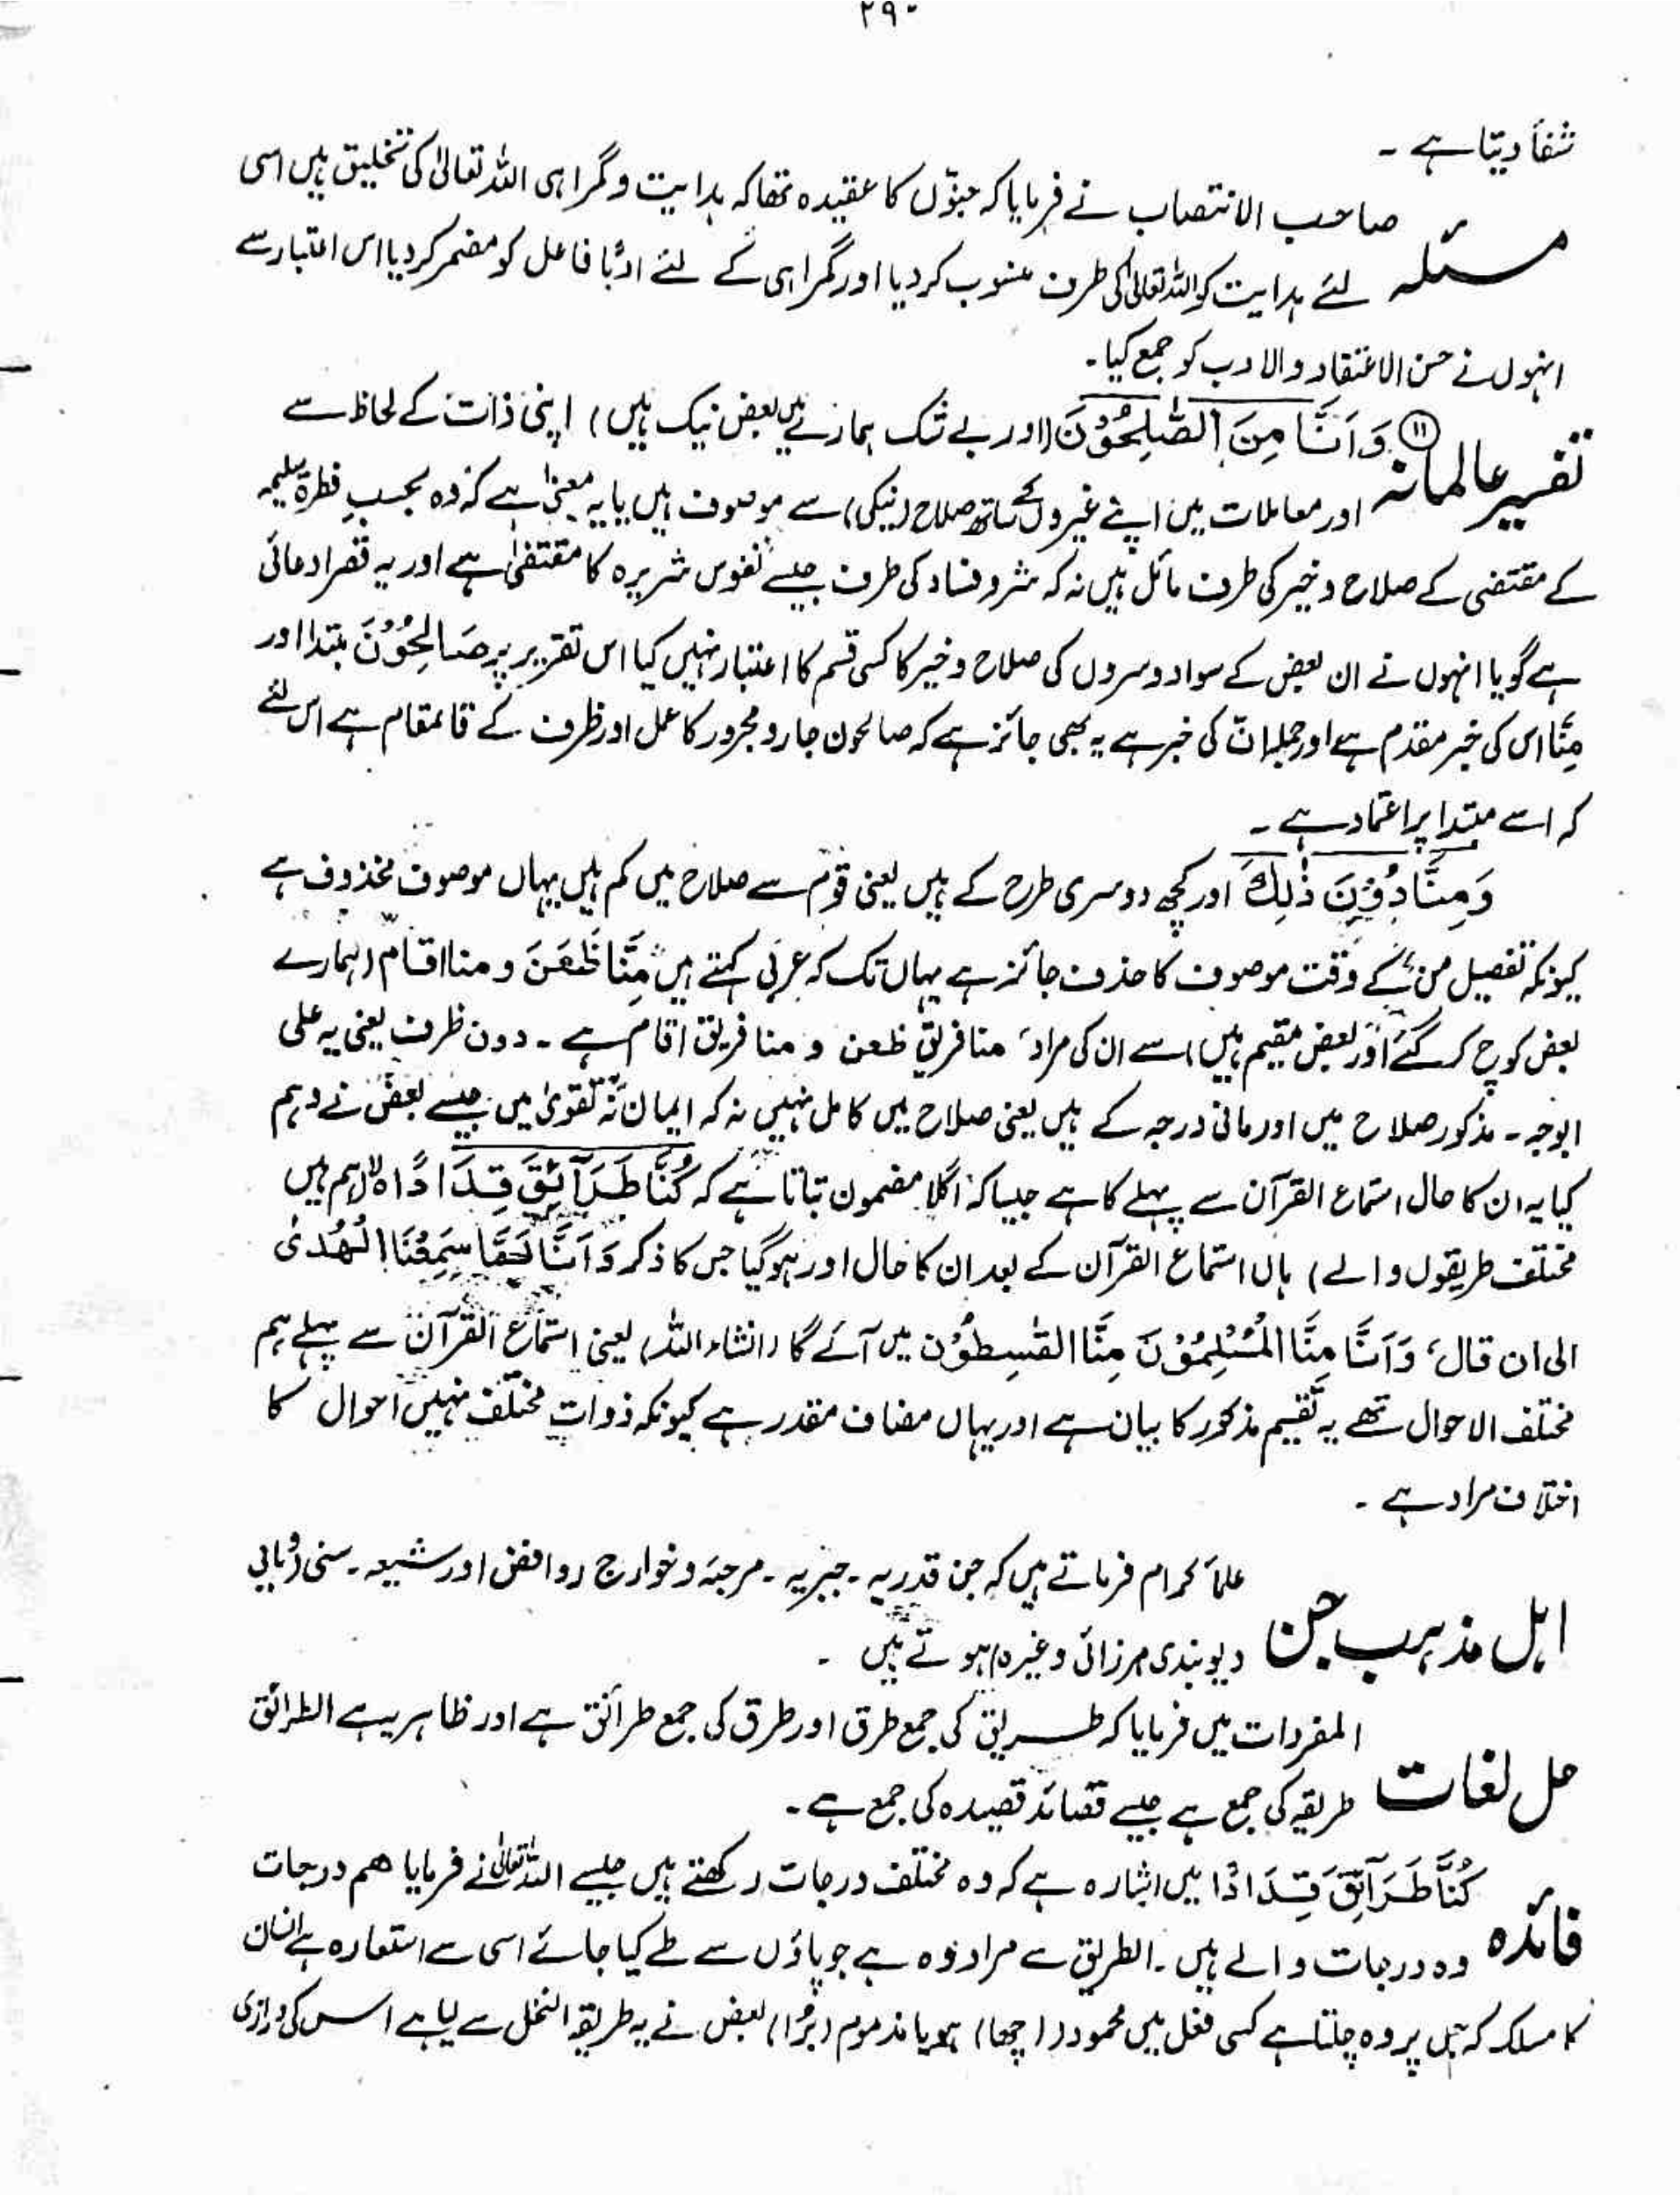 ۲۹۰
شفاً دیتا ہے ۔
صاحب الانتصاب نے فرمایا کہ جنوّں کا عقیدہ تھا کہ ہدایت و گمراہی اللہ تعالیٰ کی تخلیق ہیں اسی
مسئلہ لئے ہدایت کو اللہ تعالیٰ کی طرف منسوب کردیا اور گمراہی کے لئے ادبًا فاعل کو مضمر کردیا اس اعتبار سے
انہوں نے حسن الاعتقاد والادب کو جمع کیا ۔
تفسیر عالمانہ ⑪ وَ اَنَّا مِنَّا الصّٰلِحُوْنَ (اور بے شک ہمارے میں بعض نیک ہیں) اپنی ذات کے لحاظ سے
اور معاملات میں اپنے غیروں کے ساتھ صلاح (نیکی) سے موصوف ہیں یا یہ معنیٰ ہے کہ وہ بحسبِ فطرۃ سلیمہ
کے مقتضی کے صلاح و خیر کی طرف مائل ہیں نہ کہ شر و فساد کی طرف جیسے نفوس شریرہ کا مقتضیٰ ہے اور یہ قصر ادعائی
ہے گویا انہوں نے ان بعض کے سوا دوسروں کی صلاح و خیر کا کسی قسم کا اعتبار نہیں کیا اس تقریر پر صَالِحُوْنَ مبتدا اور
مِنَّا اس کی خبر مقدم ہے اور جملہ انّ کی خبر ہے یہ بھی جائز ہے کہ صالحون جار و مجرور کا عمل اور ظرف کے قائمقام ہے اس لئے
کہ اسے مبتدا پر اعتماد ہے ۔
وَمِنَّا دُوْنَ ذٰلِكَ اور کچھ دوسری طرح کے ہیں یعنی قوم سے صلاح میں کم ہیں یہاں موصوف محذوف ہے
کیونکہ تفصیل من کے وقت موصوف کا حذف جائز ہے یہاں تک کہ عربی کہتے ہیں مِنَّا ظَعَنَ و منا اقام (ہمارے
بعض کوچ کر گئے اور بعض مقیم ہیں) اسے ان کی مراد، منا فریق ظعن و منا فریق اقام ہے ۔ دون ظرف یعنی یہ علی
الوجہ ۔ مذکور صلاح میں اور مانی درجہ کے ہیں یعنی صلاح میں کامل نہیں نہ کہ ایمان نہ تقویٰ میں جیسے بعض نے وہم
کیا یہ ان کا حال استماع القرآن سے پہلے کا ہے جیسا کہ اگلا مضمون بتاتا ہے کہ كُنَّا طَرَآئِقَ قِدَدًا (ہم ہیں
مختلف طریقوں والے) ہاں استماع القرآن کے بعد ان کا حال اور ہوگیا جس کا ذکر وَ اَنَّا لَمَّا سَمِعْنَا الْهُدٰى
الی ان قال، وَ اَنَّا مِنَّا الْمُسْلِمُوْنَ مِنَّا الْقٰسِطُوْن میں آئے گا (انشاء اللہ) یعنی استماع القرآن سے پہلے ہم
مختلف الاحوال تھے یہ تقسیم مذکور کا بیان ہے اور یہاں مضاف مقدر ہے کیونکہ ذوات مختلف نہیں احوال کا
اختلاف مراد ہے ۔
علماً کرام فرماتے ہیں کہ جن قدریہ ۔ جبریہ ۔ مرجئہ و خوارج روافض اور شیعہ ۔ سنی (وہابی
اہل مذہب جن دیوبندی مرزائی وغیرہ) ہوتے ہیں ۔
المفردات میں فرمایا کہ طریق کی جمع طرق اور طرق کی جمع طرائق ہے اور ظاہر یہ ہے الطرائق
حل لغات طریقہ کی جمع ہے جیسے قصائد قصیدہ کی جمع ہے ۔
كُنَّا طَرَآئِقَ قِدَدًا میں اشارہ ہے کہ وہ مختلف درجات رکھتے ہیں جیسے اللہ تعالیٰ نے فرمایا هم درجات
فائدہ وہ درجات والے ہیں ۔ الطریق سے مراد وہ ہے جو پاؤں سے طے کیا جائے اسی سے استعارہ ہے انسان
کا مسلک کہ جس پر وہ چلتا ہے کسی فعل میں محمود (اچھا) ہو یا مذموم (بُرا) بعض نے یہ طریقہ النخل سے لیا ہے اس کی درازی